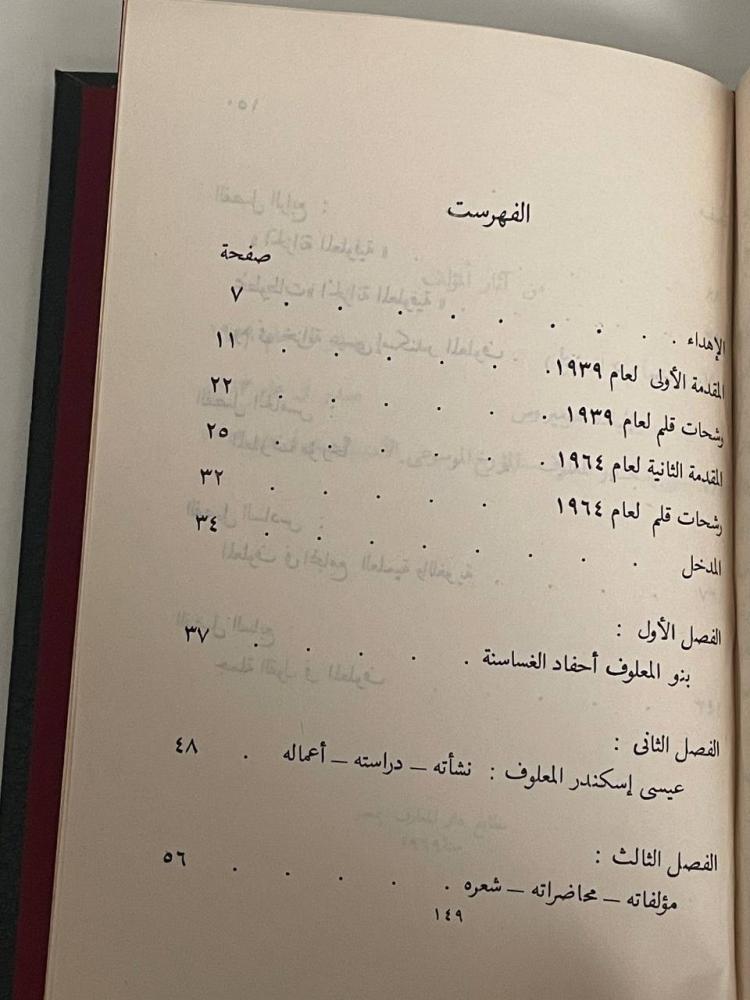 الفهرست
صفحة
الإهداء . . . . . . . . ٧
المقدمة الأولى لعام ١٩٣٩ . . . . . ١١
رشحات قلم لعام ١٩٣٩ . . . . . ٢٢
المقدمة الثانية لعام ١٩٦٤ . . . . . ٢٥
رشحات قلم لعام ١٩٦٤ . . . . . ٣٢
المدخل . . . . . . . . ٣٤
الفصل الأول :
بنو المعلوف أحفاد الغساسنة . . . . . ٣٧
الفصل الثانى :
عيسى إسكندر المعلوف : نشأته – دراسته – أعماله . ٤٨
الفصل الثالث :
مؤلفاته – محاضراته – شعره . . . . . ٥٦
١٤٩